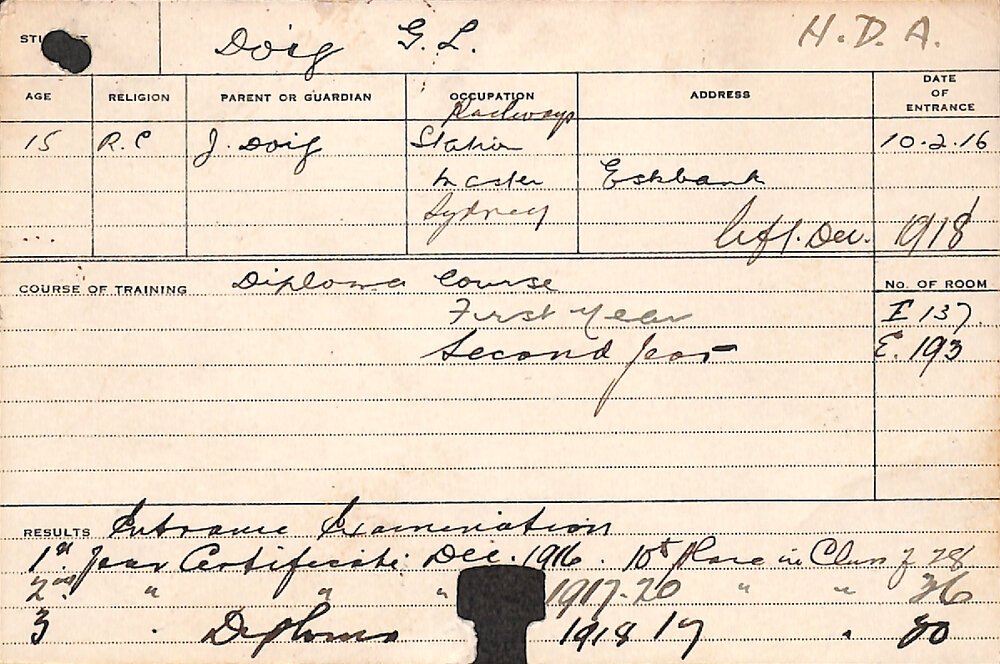 STUDENT Doig G. L. H. D. A.
AGE RELIGION PARENT OR GUARDIAN OCCUPATION ADDRESS DATE OF ENTRANCE
Railways
15 R.C J. Doig Station 10.2.16
Master Eskbank
Sydney
left. Dec. 1918
COURSE OF TRAINING Diploma Course No. OF ROOM
First Year E 137
Second Year E. 193
RESULTS Entrance Examination
1st Year Certificate Dec. 1916. 10th Place in Class of 28
2nd " " " 1917-20 " " 36
3 . Diploma 1918 17 .